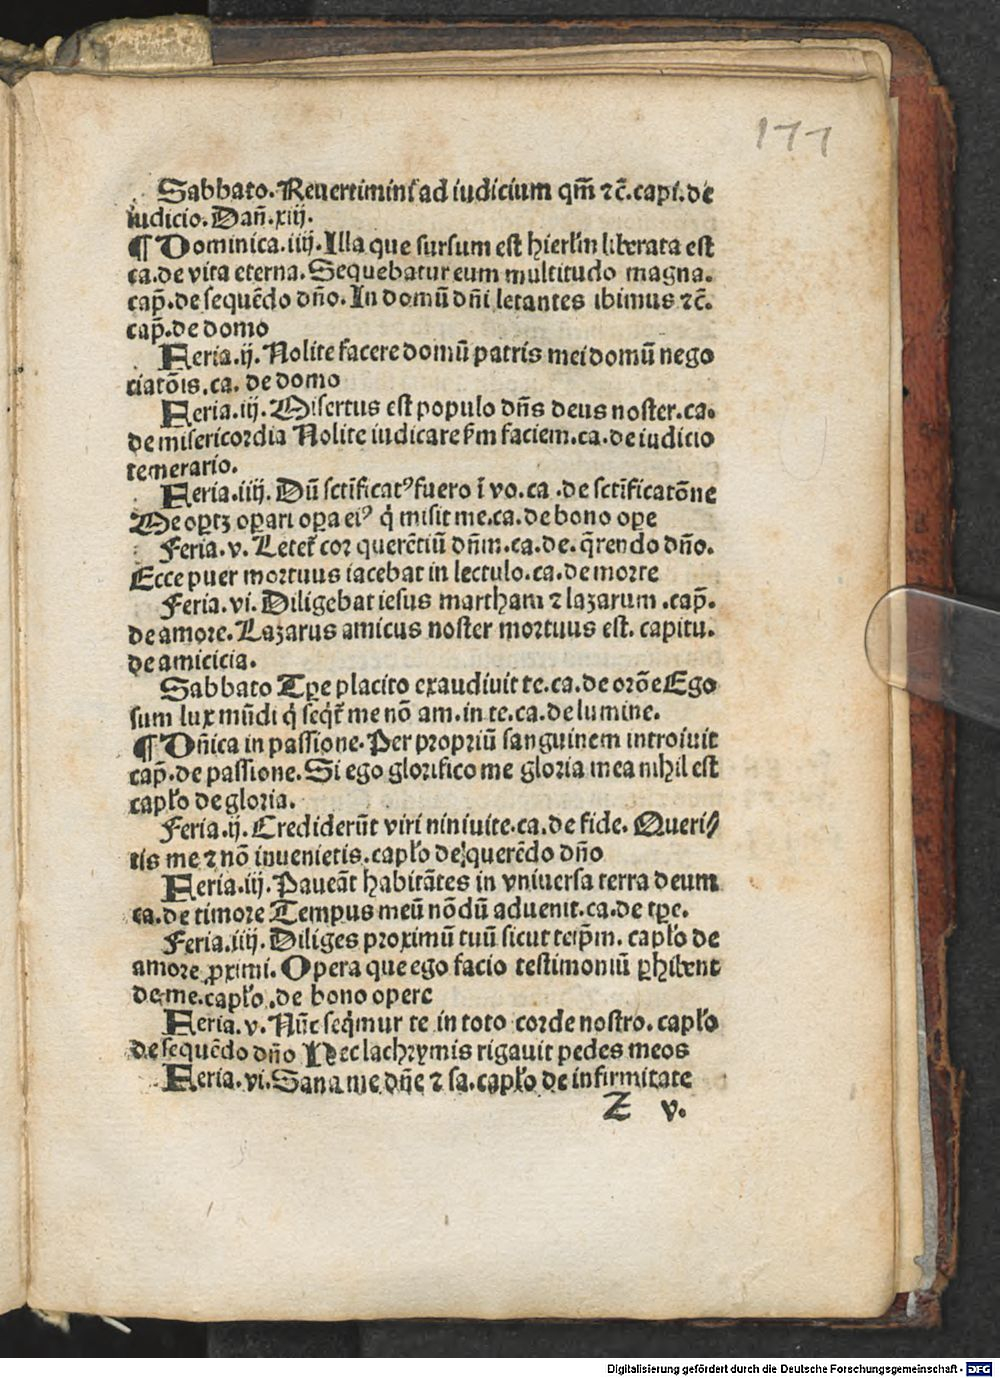 177
Sabbato. Reuertimini ad iudicium qm̄ ⁊c̄. capi. de
iudicio. Dan̄. xiij.
¶ Dominica. iiij. Illa que sursum est hierlm̄ liberata est
ca. de vita eterna. Sequebatur eum multitudo magna.
cap̄. de sequēdo dn̄o. In domū dn̄i letantes ibimus ⁊c̄.
cap̄. de domo
Feria. ij. Nolite facere domū patris mei domū nego
ciatōis. ca. de domo
Feria. iij. Misertus est populo dn̄s deus noster. ca.
de misericordia Nolite iudicare ẜm faciem. ca. de iudicio
temerario.
Feria. iiij. Dū sct̄ificatꝰ fuero ī vo. ca. de sct̄ificatōne
Me oꝑtꝫ oꝑari oꝑa eiꝰ q̇ misit me. ca. de bono oꝑe
Feria. v. Letet᷑ cor querētiū dn̄m. ca. de. q̄rendo dn̄o.
Ecce puer mortuus iacebat in lectulo. ca. de morte
Feria. vi. Diligebat iesus martham ⁊ lazarum. cap̄.
de amore. Lazarus amicus noster mortuus est. capitu.
de amicicia.
Sabbato Tꝑe placito exaudiuit te. ca. de orōe Ego
sum lux mūdi q̇ seq̇t᷑ me nō am. in te. ca. de lumine.
¶ Dn̄ica in passione. Per propriū sanguinem introiuit
cap̄. de passione. Si ego glorifico me gloria mea nihil est
capl̓o de gloria.
Feria. ij. Crediderūt viri niniuite. ca. de fide. Queri⸗
tis me ⁊ nō inuenietis. capl̓o de querēdo dn̄o
Feria. iij. Paueāt habitātes in vniuersa terra deum
ca. de timore Tempus meū nōdū aduenit. ca. de tꝑe.
Feria. iiij. Diliges proximū tuū sicut teip̄m. capl̓o de
amore ꝓximi. Opera que ego facio testimoniū ꝑhibent
de me. capl̓o. de bono opere
Feria. v. Nūc seq̇mur te in toto corde nostro. capl̓o
de sequēdo dn̄o Hec lachrymis rigauit pedes meos
Feria. vi. Sana me dn̄e ⁊ sa. capl̓o de infirmitate
Z v.
Digitalisierung gefördert durch die Deutsche Forschungsgemeinschaft - DFG